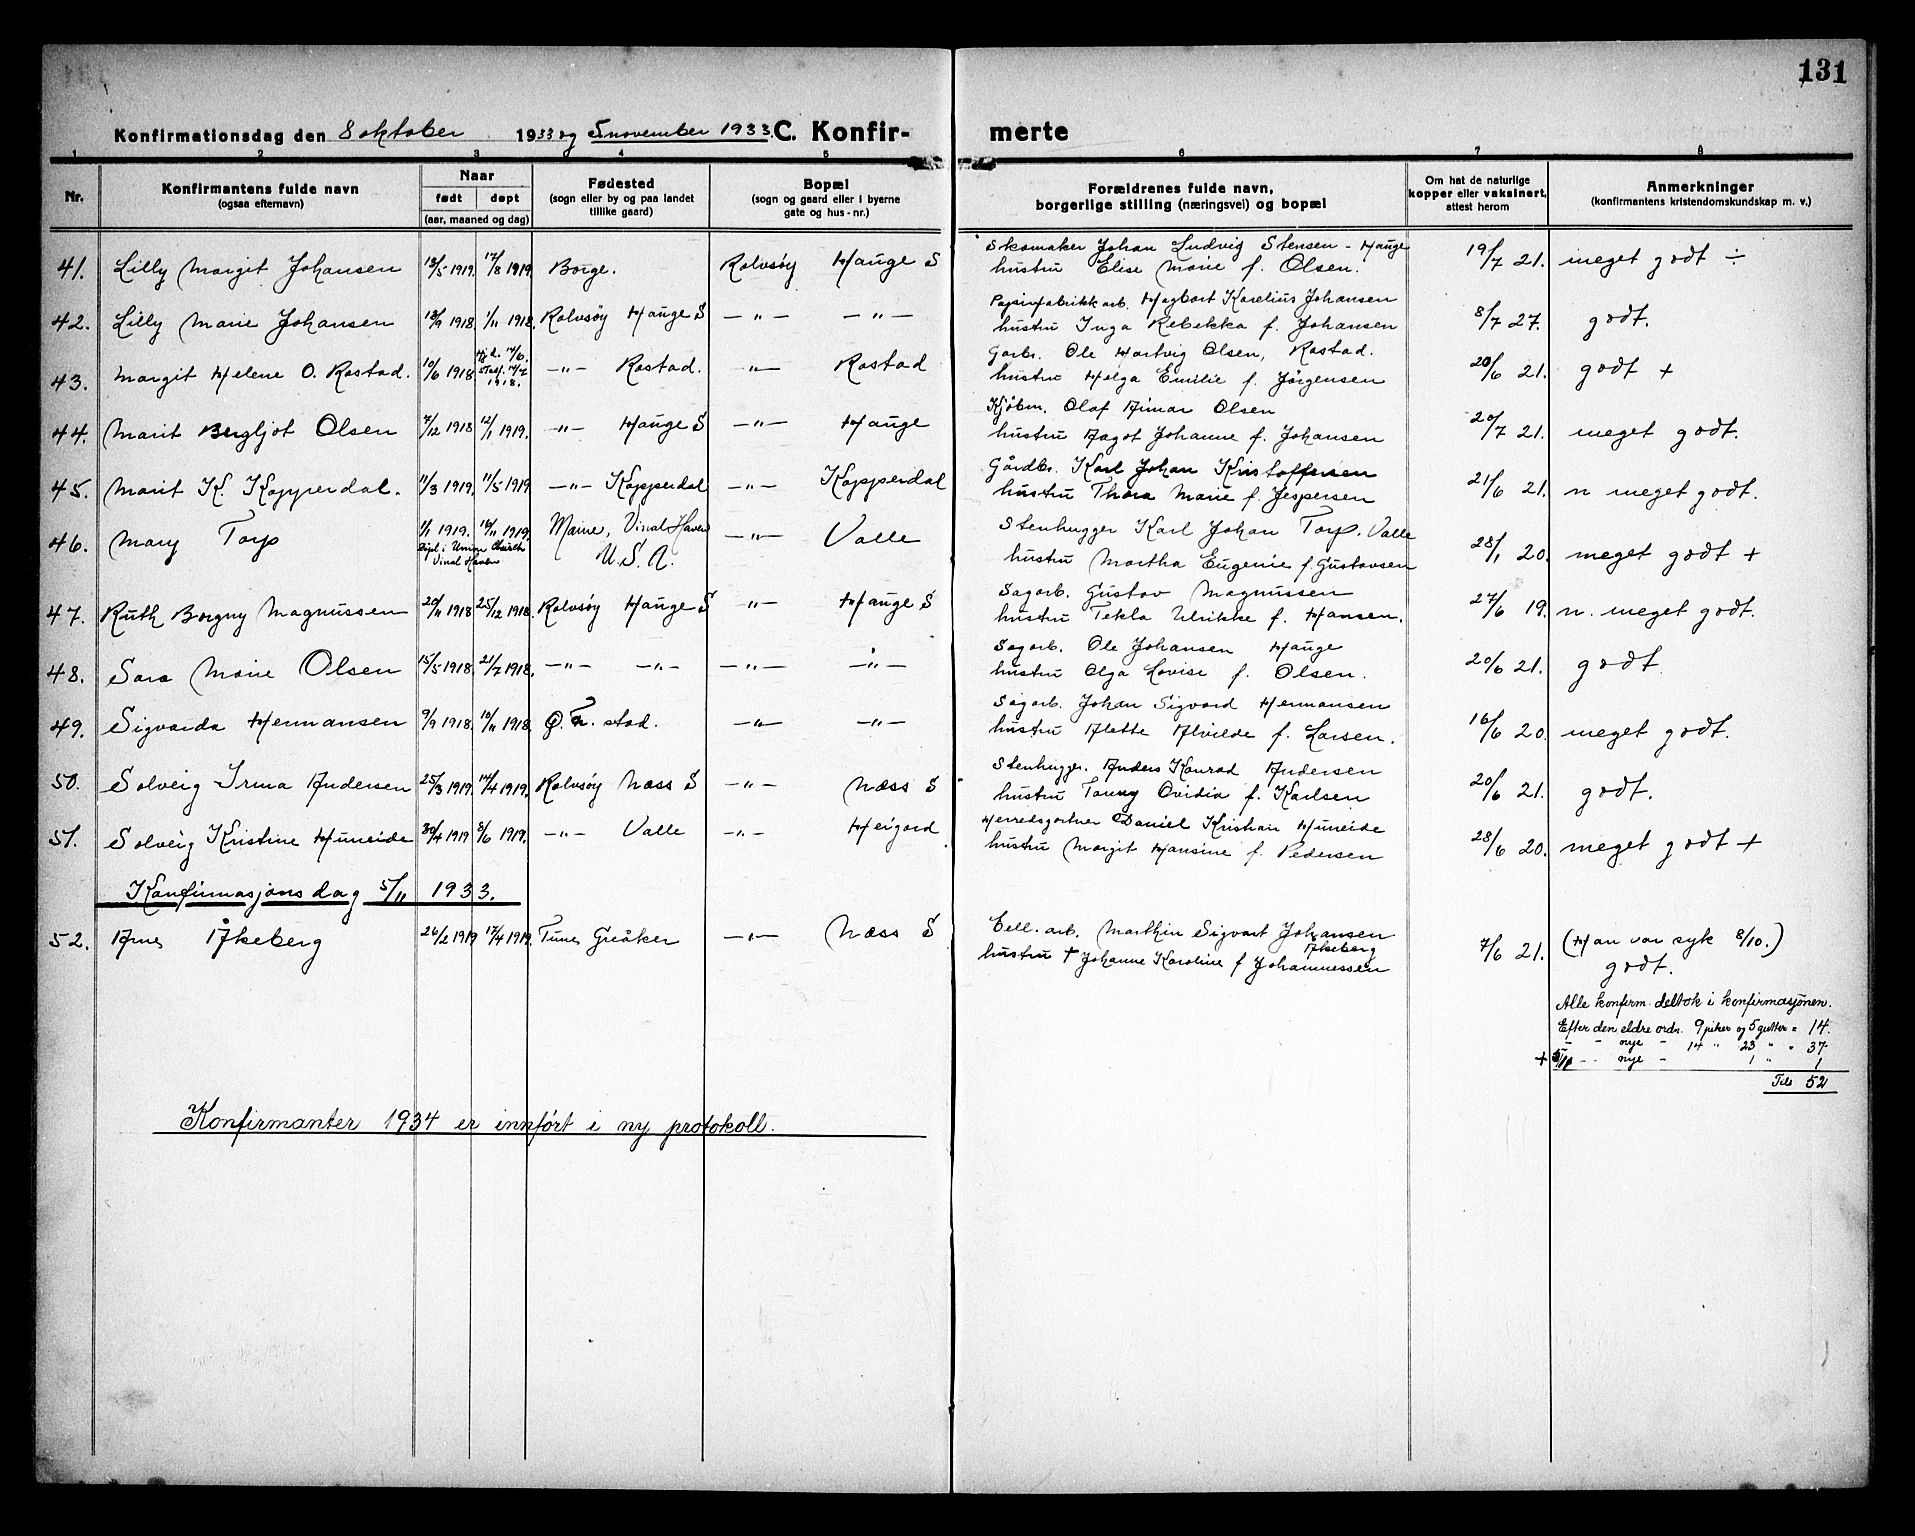 131
Konfirmationsdag den 8 oktober 1933 og 5 november 1933. C. Konfir- merte
1 2 3 4 5 6 7 8
Nr.
Konfirmantens fulde navn
(ogsaa efternavn)
Naar
født døpt
(aar, maaned og dag)
Fødested
(sogn eller by og paa landet
tillike gaard)
Bopæl
(sogn og gaard eller i byerne
gate og hus-nr.)
Forældrenes fulde navn,
borgerlige stilling (næringsvei) og bopæl
Om hat de naturlige
kopper eller vaksinert,
attest herom
Anmerkninger
(konfirmantens kristendomskundskap m. v.)
41. Lilly Margit Johansen 13/5 1919. 17/8 1919. Borge. Rolvsöy Hauge S Skomaker Johan Ludvig Stensen - Hauge
hustru Elise Marie f. Olsen. 19/7 21. meget godt ÷
42. Lilly Marie Johansen 13/9 1918. 1/11 1918. Rolvsöy Hauge S —„— —„— Papirfabrikk arb. Hagbart Karelius Johansen
hustru Inga Rebekka f. Johansen 8/7 27. godt.
43. Margit Helene O. Rostad. 10/6 1918 Hj.d. 14/6. Stadf. 14/7 1918. —„— Rostad. —„— Rostad Garbr. Ole Hartvig Olsen, Rostad.
hustru Helga Emilie f. Jörgensen 20/6 21. godt +
44. Marit Bergljot Olsen 7/12 1918 12/1 1919. —„— Hauge S —„— Hauge Kjöbm. Olaf Aimar Olsen
hustru Aagot Johanne f. Johansen 20/7 21. meget godt.
45. Marit K. Kopperdal. 11/3 1919. 11/5 1919 —„— Kopperdal —„— Kopperdal Gårdbr. Karl Johan Kristoffersen
hustru Thora Marie f. Jespersen 21/6 21. n meget godt.
46. Mary Torp 1/1 1919. 16/11 1919. Döpt i Union Church Vinal Haven Maine, Vinal Haven U.S.A. —„— Valle Stenhugger Karl Johan Torp. Valle
hustru Martha Eugenie f. Gustavsen 28/1 20. meget godt +
47. Ruth Borgny Magnussen 20/11 1918 25/12 1918. Rolvsöy Hauge S —„— Hauge S Sagarb. Gustav Magnussen
hustru Tekla Ulrikke f. Hansen. 27/6 19. n. meget godt.
48. Sara Marie Olsen 15/5 1918. 21/7 1918. —„— —„— —„— —„— Sagarb. Ole Johansen Hauge
hustru Olga Lovise f. Olsen. 20/6 21. godt.
49. Sigvarda Hermansen 9/9 1918. 10/11 1918. Ö. Fr. stad. —„— —„— Sagarb. Johan Sigvard Hermansen
hustru Alette Alvilde f. Larsen. 16/6 20. meget godt.
50. Solveig Irma Andersen 25/3 1919. 14/4 1919. Rolvsöy Næss S —„— Næss S Stenhugger. Anders Konrad Andersen
hustru Fanny Ovidia f. Karlsen 20/6 21. godt.
51. Solveig Kristine Huneide 30/4 1919 8/6 1919. —„— Valle —„— Heigard Herredsgartner Daniel Kristian Huneide
hustru Margit Hansine f. Pedersen 28/6 20. meget godt +
Konfirmasjonsdag 5/11 1933.
52. Arne Åkeberg 26/2 1919 17/4 1919. Tune Greåker —„— Næss S Cell. arb. Marthin Sigvart Johansen Åkeberg
hustru † Johanne Karoline f Johannessen 7/6 21. (Han var syk 8/10.)
godt.
Alle konfirm. deltok i konfirmasjönen.
Efter den eldre ordn. 9 piker og 5 gutter = 14.
— - nye - 14 „ 23 „ „ 37
+ 5/11 - - nye - 1 „ 1
Tils 52
Konfirmanter 1934 er innfört i ny protokoll.